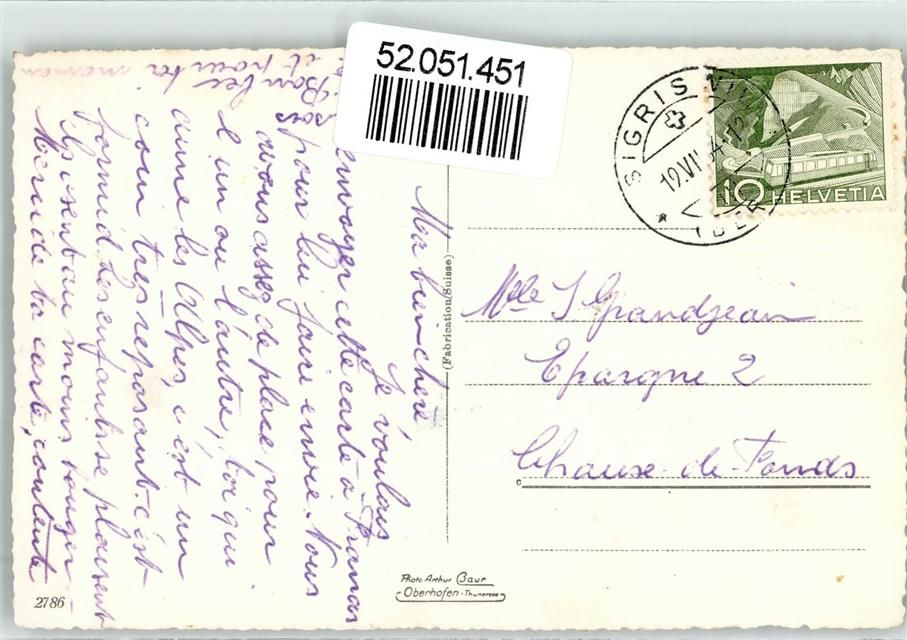 52.051.451
SIGRISWIL
(BERN)
10 HELVETIA
Ma bien chère
Je voulais
envoyer cette carte à Fransas
pour lui faire envie. Nous
avons assez de place pour
l'un ou l'autre, toi qui
aime les Alpes, c'est un
coin très reposant. c'est
formid. les enfants se plaisent
ils osent au moins bouger
Merci de ta carte, contente
Bon bec
et pour toi maman
(Fabrication Suisse)
Mlle J Grandjean
Epargne 2
Chaux-de-Fonds
Photo Arthur Baur
Oberhofen-Thunersee
2786